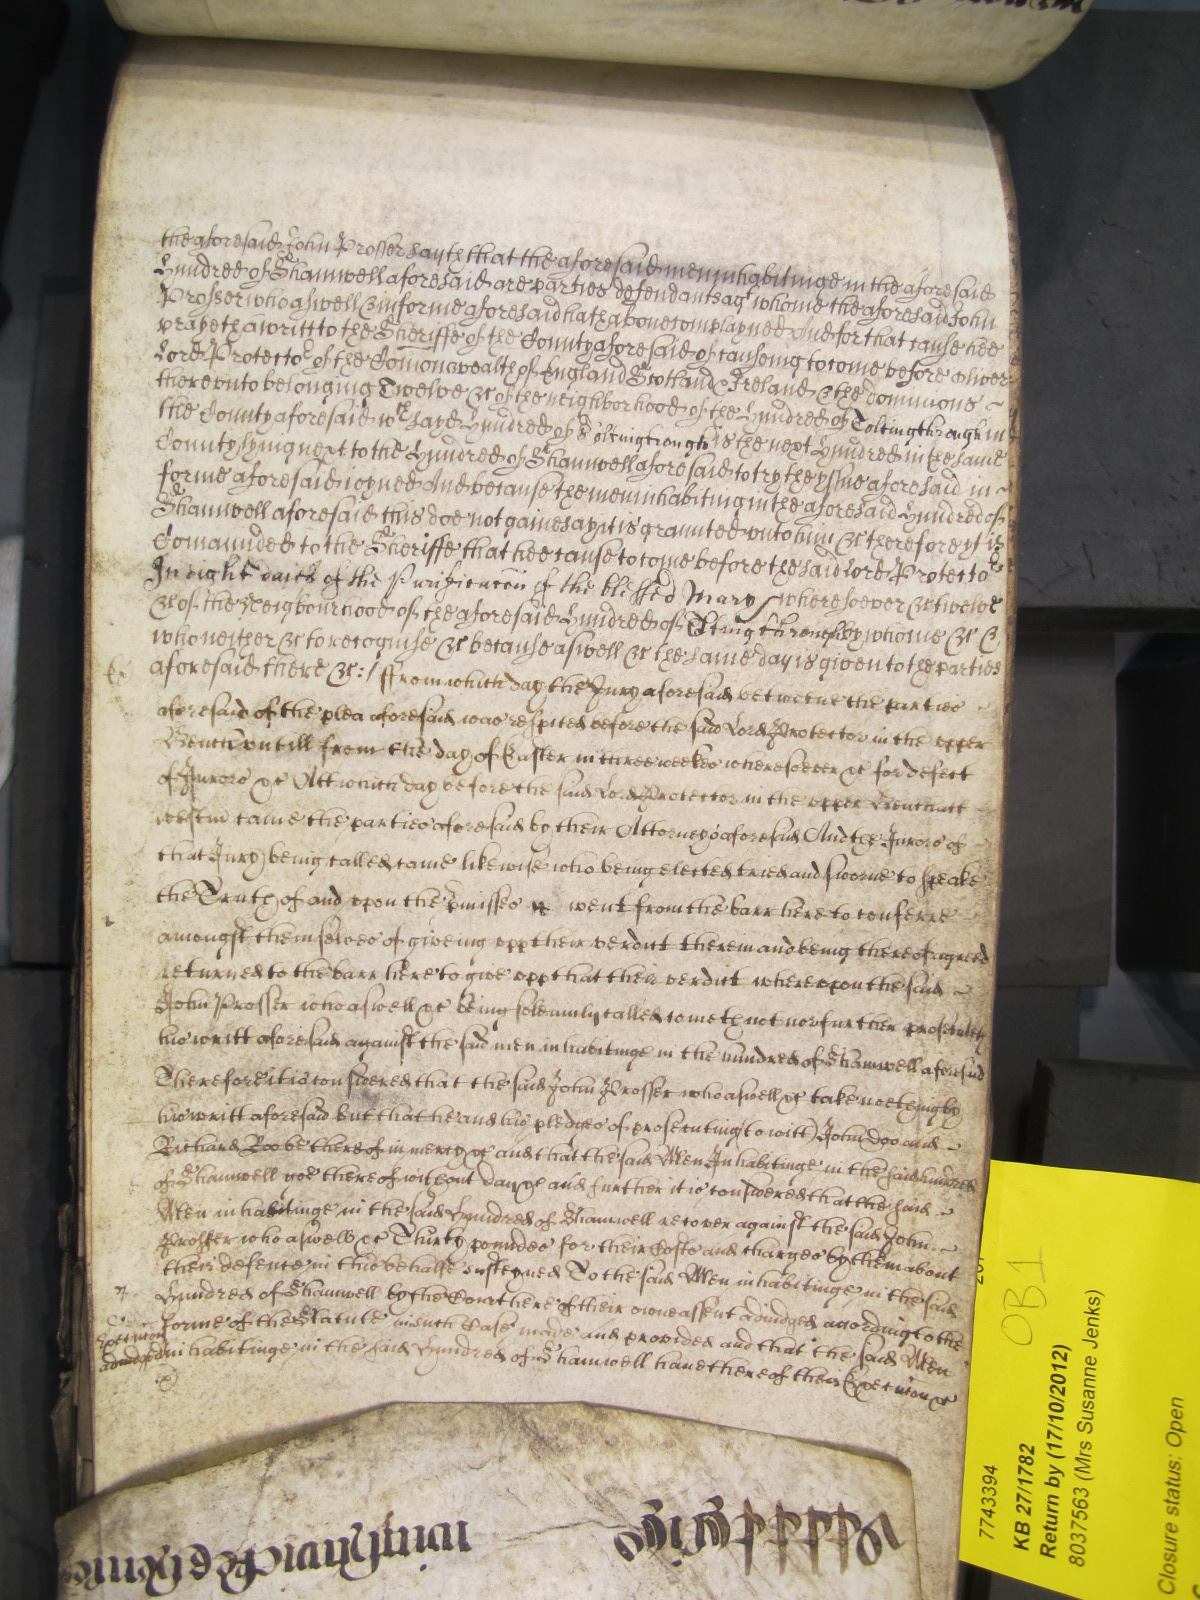 the aforesaid John Prosser sayth that the aforesaid men inhabitinge in the aforesaid
Hundred of Shamwell aforesaid are parties defendants agt whome the aforesaid John
Prosser who aswell &c in forme aforesaid hath above complayned And for that cause hee
prayeth a writt to the Sheriffe of the County aforesaid of causeing to come before Oliver
Lord Protector of the Comonwealth of England Scotland & Ireland & the dominions
thereunto belonging Twelve &c of the neighborhood of the Hundred of Toltingthrough in
the County aforesaid wch sayd Hundred of Toltingtrough is the next Hundred in the same
County lying next to the Hundred of Shamwell aforesaid to try the yssue aforesaid in
forme aforesaid ioyned And because the men inhabiting in the aforesaid Hundred of
Shamwell aforesaid this doe not gainesay it is graunted unto him &c therefore yt is
Comaunded to the Sheriffe that hee cause to come before the said Lord Protector
In eight daies of the Purificacon of the blessed Mary wheresoever &c twelve
&c of the Neigbourhood of the aforesaid Hundred of by whome &c &
who neither &c to recognise &c because aswell &c the same day is given to the parties
aforesaid there &c:/ From which day the Jury aforesaid betweene the parties
aforesaid of the plea aforesaid was respited before the said Lord Protector in the upper
Bench untill from the day of Easter in three weekes wheresoever &c for defect
of Jurors &c Att which day before the said Lord Protector in the upper Bench att
Westm came the parties aforesaid by their Attorneys aforesaid And the Jurors of
that Jury being called came likewise who being elected tried and sworne to speake
the Truth of and upon the p'misses went from the barr here to conferre
amongst themselves of giveing upp their verdict therein and being thereof agreed
returned to the barr here to give upp that their verdict whereupon the said
John Prosser who aswell &c being solemnly called cometh not nor further prosecuteth
his writt aforesaid against the said men inhabitinge in the hundred of Shamwell aforesaid
Therefore it is considered that the said John Prosser who aswell &c take nothing by
his writt aforesaid but that he and his pledges of prosecuting (to witt) John Doo and
Richard Roo be thereof in mercy &c and that the said Men Inhabitinge in the said hundred
of Shamwell goe thereof without day &c and further it is considered that the said
Men inhabitinge in the said Hundred of Shamwell recover against the said John
Prosser who aswell &c Thirty poundes for their Costs and charges by them about
their defence in this behalfe susteyned To the said Men inhabitinge in the said
Hundred of Shamwell by the Court here of their owne assent adiudged according to the
forme of the Statute in such Case made and provided and that the said Men
inhabitinge in the said Hundred of Shamwell have thereof their Execucion &c
7743394
KB 27/1782
Return by (17/10/2012)
8037563 (Mrs Susanne Jenks)
OB1
Closure status: Open